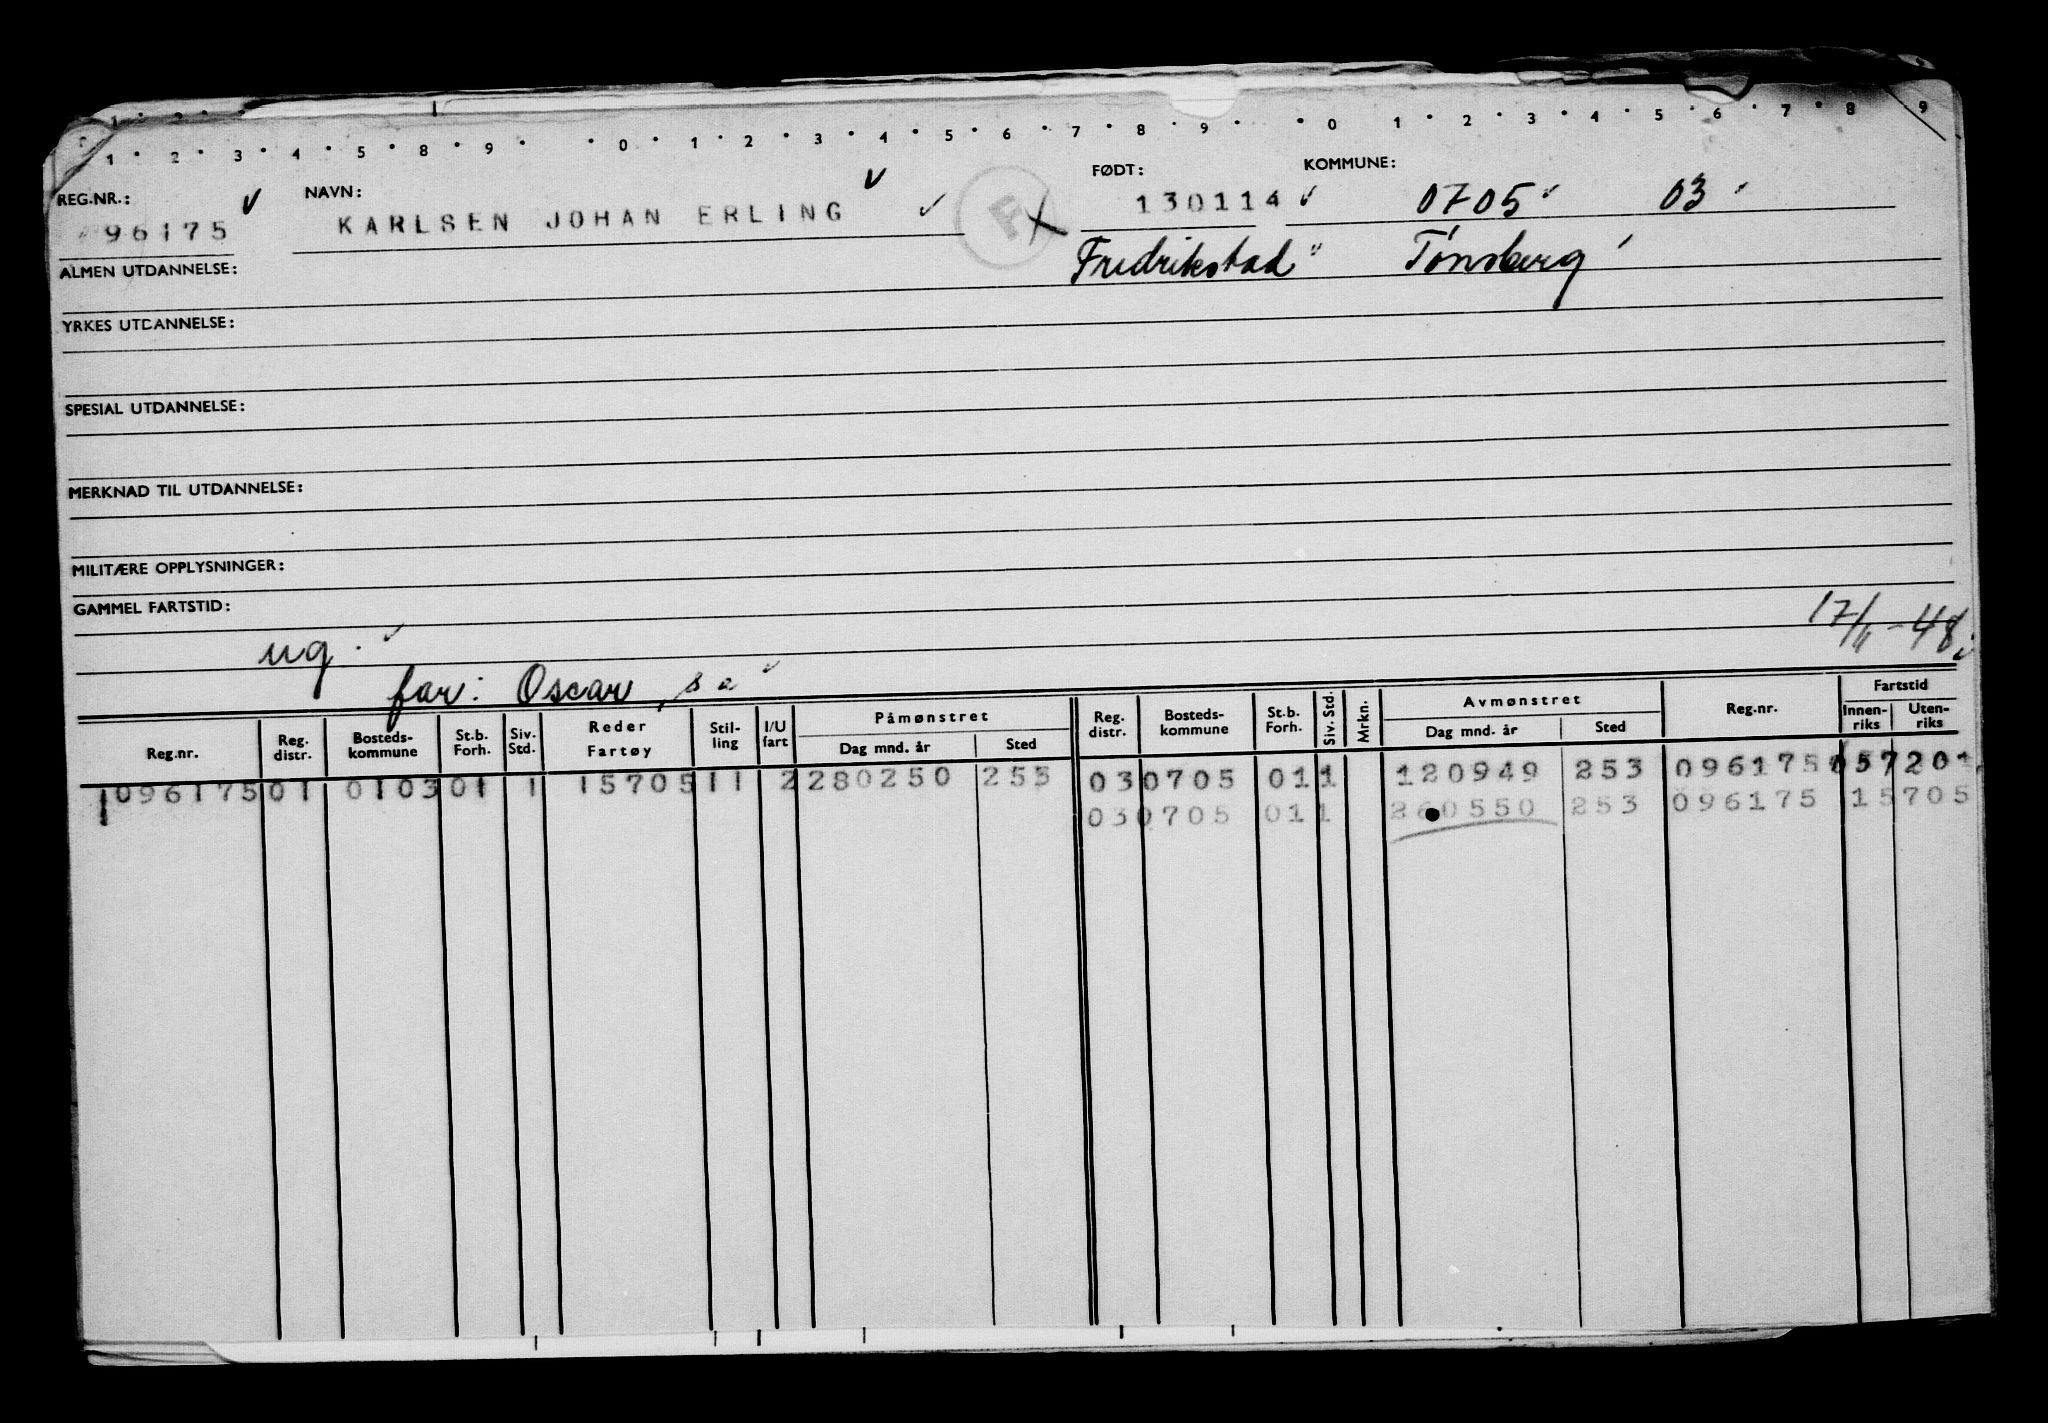 1 2
1 2 3 4 5 8 9 0 1 2 3 4 5 6 7 8 9 0 1 2 3 4 5 6 7 8 9
REG.NR.: NAVN: FØDT: KOMMUNE:
96175 KARLSEN JOHAN ERLING F 130114 0705 03
Fredrikstad Tønsberg
ALMEN UTDANNELSE:
YRKES UTDANNELSE:
SPESIAL UTDANNELSE:
MERKNAD TIL UTDANNELSE:
MILITÆRE OPPLYSNINGER:
GAMMEL FARTSTID:
17/11-48
ug.
far: Oscar, s a
Reg.nr. Reg. distr. Bosteds-kommune St.b. Forh. Siv. Std. Reder Fartøy Stil-ling I/U fart Påmønstret Dag mnd. år Sted Reg. distr. Bosteds-kommune St.b. Forh. Siv. Std. Mrkn. Avmønstret Dag mnd. år Sted Reg.nr. Fartstid Innen-riks Uten-riks
096175 01 0103 01 1 15705 11 2 280250 253 03 0705 01 1 120949 253 096175 57201
03 0705 01 1 260550 253 096175 15705